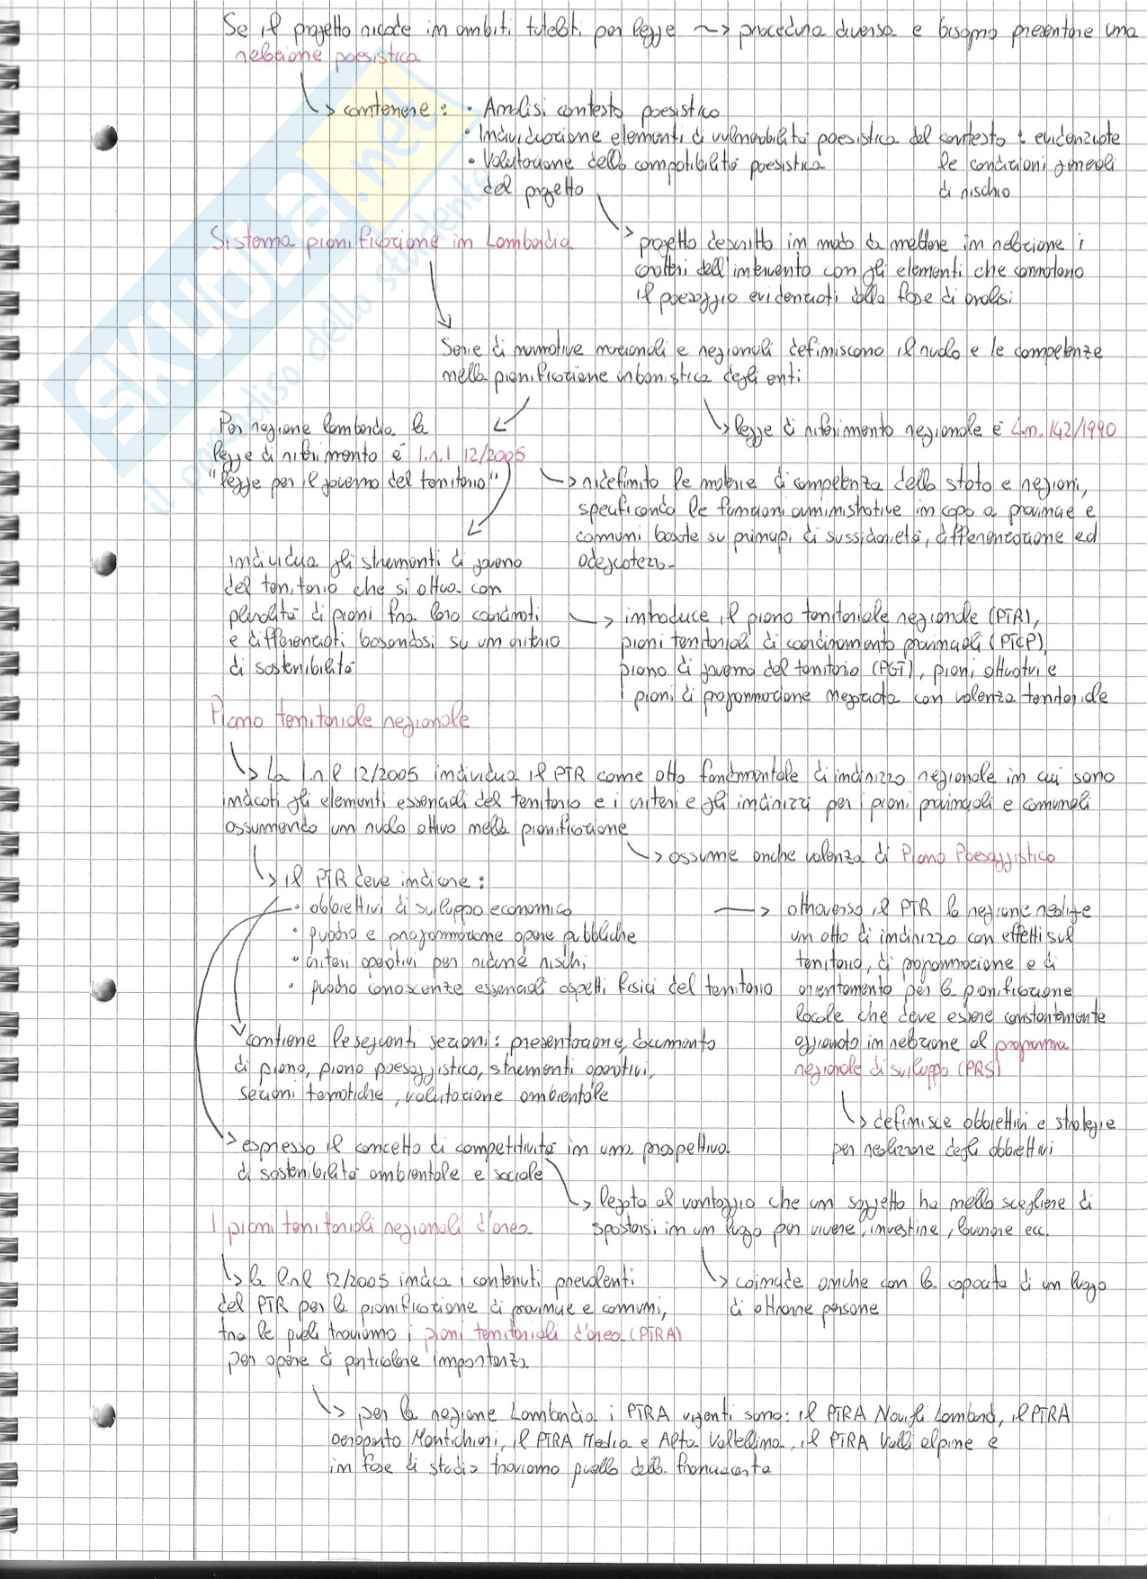 Se il progetto ricade in ambiti tutelati per legge ~> procedura diversa e bisogna presentare una
relazione paesistica
↳ contenere: • Analisi contesto paesistico
• Individuazione elementi di vulnerabilità paesistica del contesto : evidenziate
le condizioni generali
di rischio
• Valutazione della compatibilità paesistica
del progetto
↳ progetto descritto in modo da mettere in relazione i
caratteri dell'intervento con gli elementi che connotano
il paesaggio evidenziati dalla fase di analisi
Sistema pianificazione in Lombardia
Serie di normative nazionali e regionali definiscono il ruolo e le competenze
nella pianificazione urbanistica degli enti
Per regione lombardia la
legge di riferimento è l.r.l 12/2005
"legge per il governo del territorio"
↳ legge di riferimento regionale è L.n. 142/1990
↳ ridefinito le materie di competenza dello stato e regioni,
specificando le funzioni amministrative in capo a province e
comuni basate su principi di sussidiarietà, differenziazione ed
adeguatezza
individua gli strumenti di governo
del territorio che si attua con
pluralità di piani fra loro coordinati
e differenziati basandosi su un criterio
di sostenibilità
↳ introduce il piano territoriale regionale (PTR),
piani territoriali di coordinamento provinciali (PTCP),
piano di governo del territorio (PGT), piani attuativi e
piani di programmazione negoziata con valenza territoriale
Piano territoriale regionale
↳ La l.r.l 12/2005 individua il PTR come atto fondamentale di indirizzo regionale in cui sono
indicati gli elementi essenziali del territorio e i criteri e gli indirizzi per i piani provinciali e comunali
assumendo un ruolo attivo nella pianificazione
↳ assume anche valenza di Piano Paesaggistico
↳ il PTR deve indicare:
• obbiettivi di sviluppo economico
• quadro e programmazione opere pubbliche
• criteri operativi per ridurre rischi
• quadro conoscenze essenziali aspetti fisici del territorio
→ attraverso il PTR la regione realizza
un atto di indirizzo con effetti sul
territorio, di programmazione e di
orientamento per la pianificazione
locale che deve essere constantemente
aggiornato in relazione al programma
regionale di sviluppo (PRS)
↳ definisce obbiettivi e strategie
per realizzare degli obbiettivi
contiene le seguenti sezioni: presentazione, documento
di piano, piano paesaggistico, strumenti operativi,
sezioni tematiche, valutazione ambientale
espresso il concetto di competitività in una prospettiva
di sostenibilità ambientale e sociale
↳ legata al vantaggio che un soggetto ha nello scegliere di
spostarsi in un luogo per vivere, investire, lavorare ecc.
↳ coincide anche con la capacità di un luogo
di attrarre persone
I piani territoriali regionali d'area
↳ la l.r.l 12/2005 indica i contenuti prevalenti
del PTR per la pianificazione di province e comuni,
tra le quali troviamo i piani territoriali d'area (PTRA)
per opere di particolare importanza
↳ per la regione Lombardia i PTRA vigenti sono: il PTRA Navigli Lombardi, il PTRA
aeroporto Montichiari, il PTRA Media e Alta Valtellina, il PTRA Valli alpine e
in fase di studio troviamo quello della Franciacorta
SKUOLA.net
il paradiso dello studente